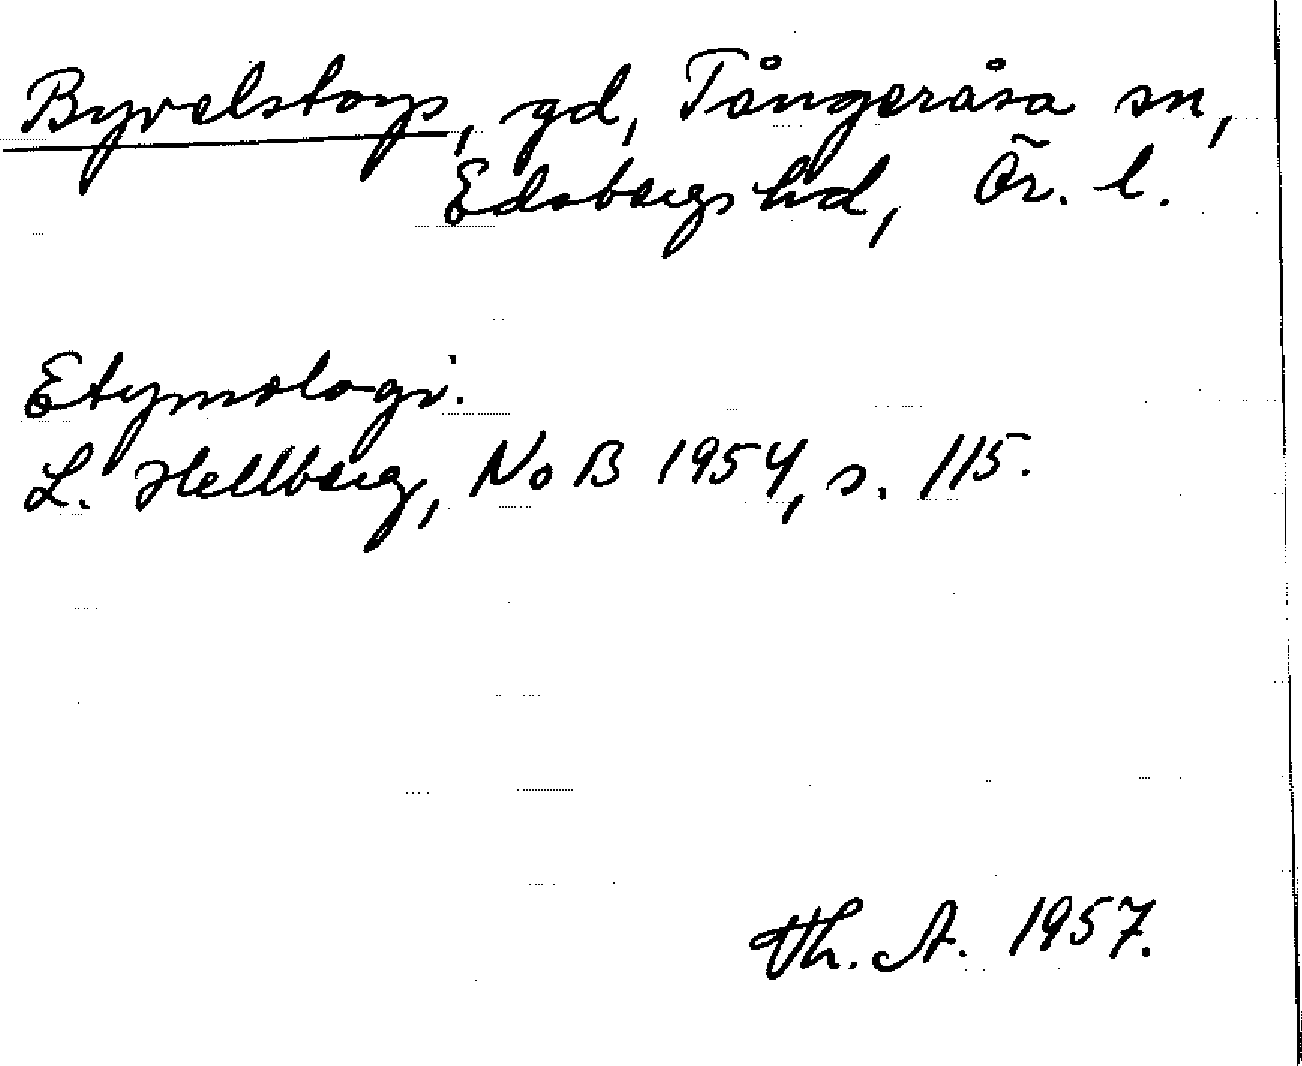 Byvelstorp, gd, Tångeråsa sn,
Edsbergs hd, Ör. l.
Etymologi.
L. Hellberg, NoB 1954, s. 115.
Th. A. 1957.